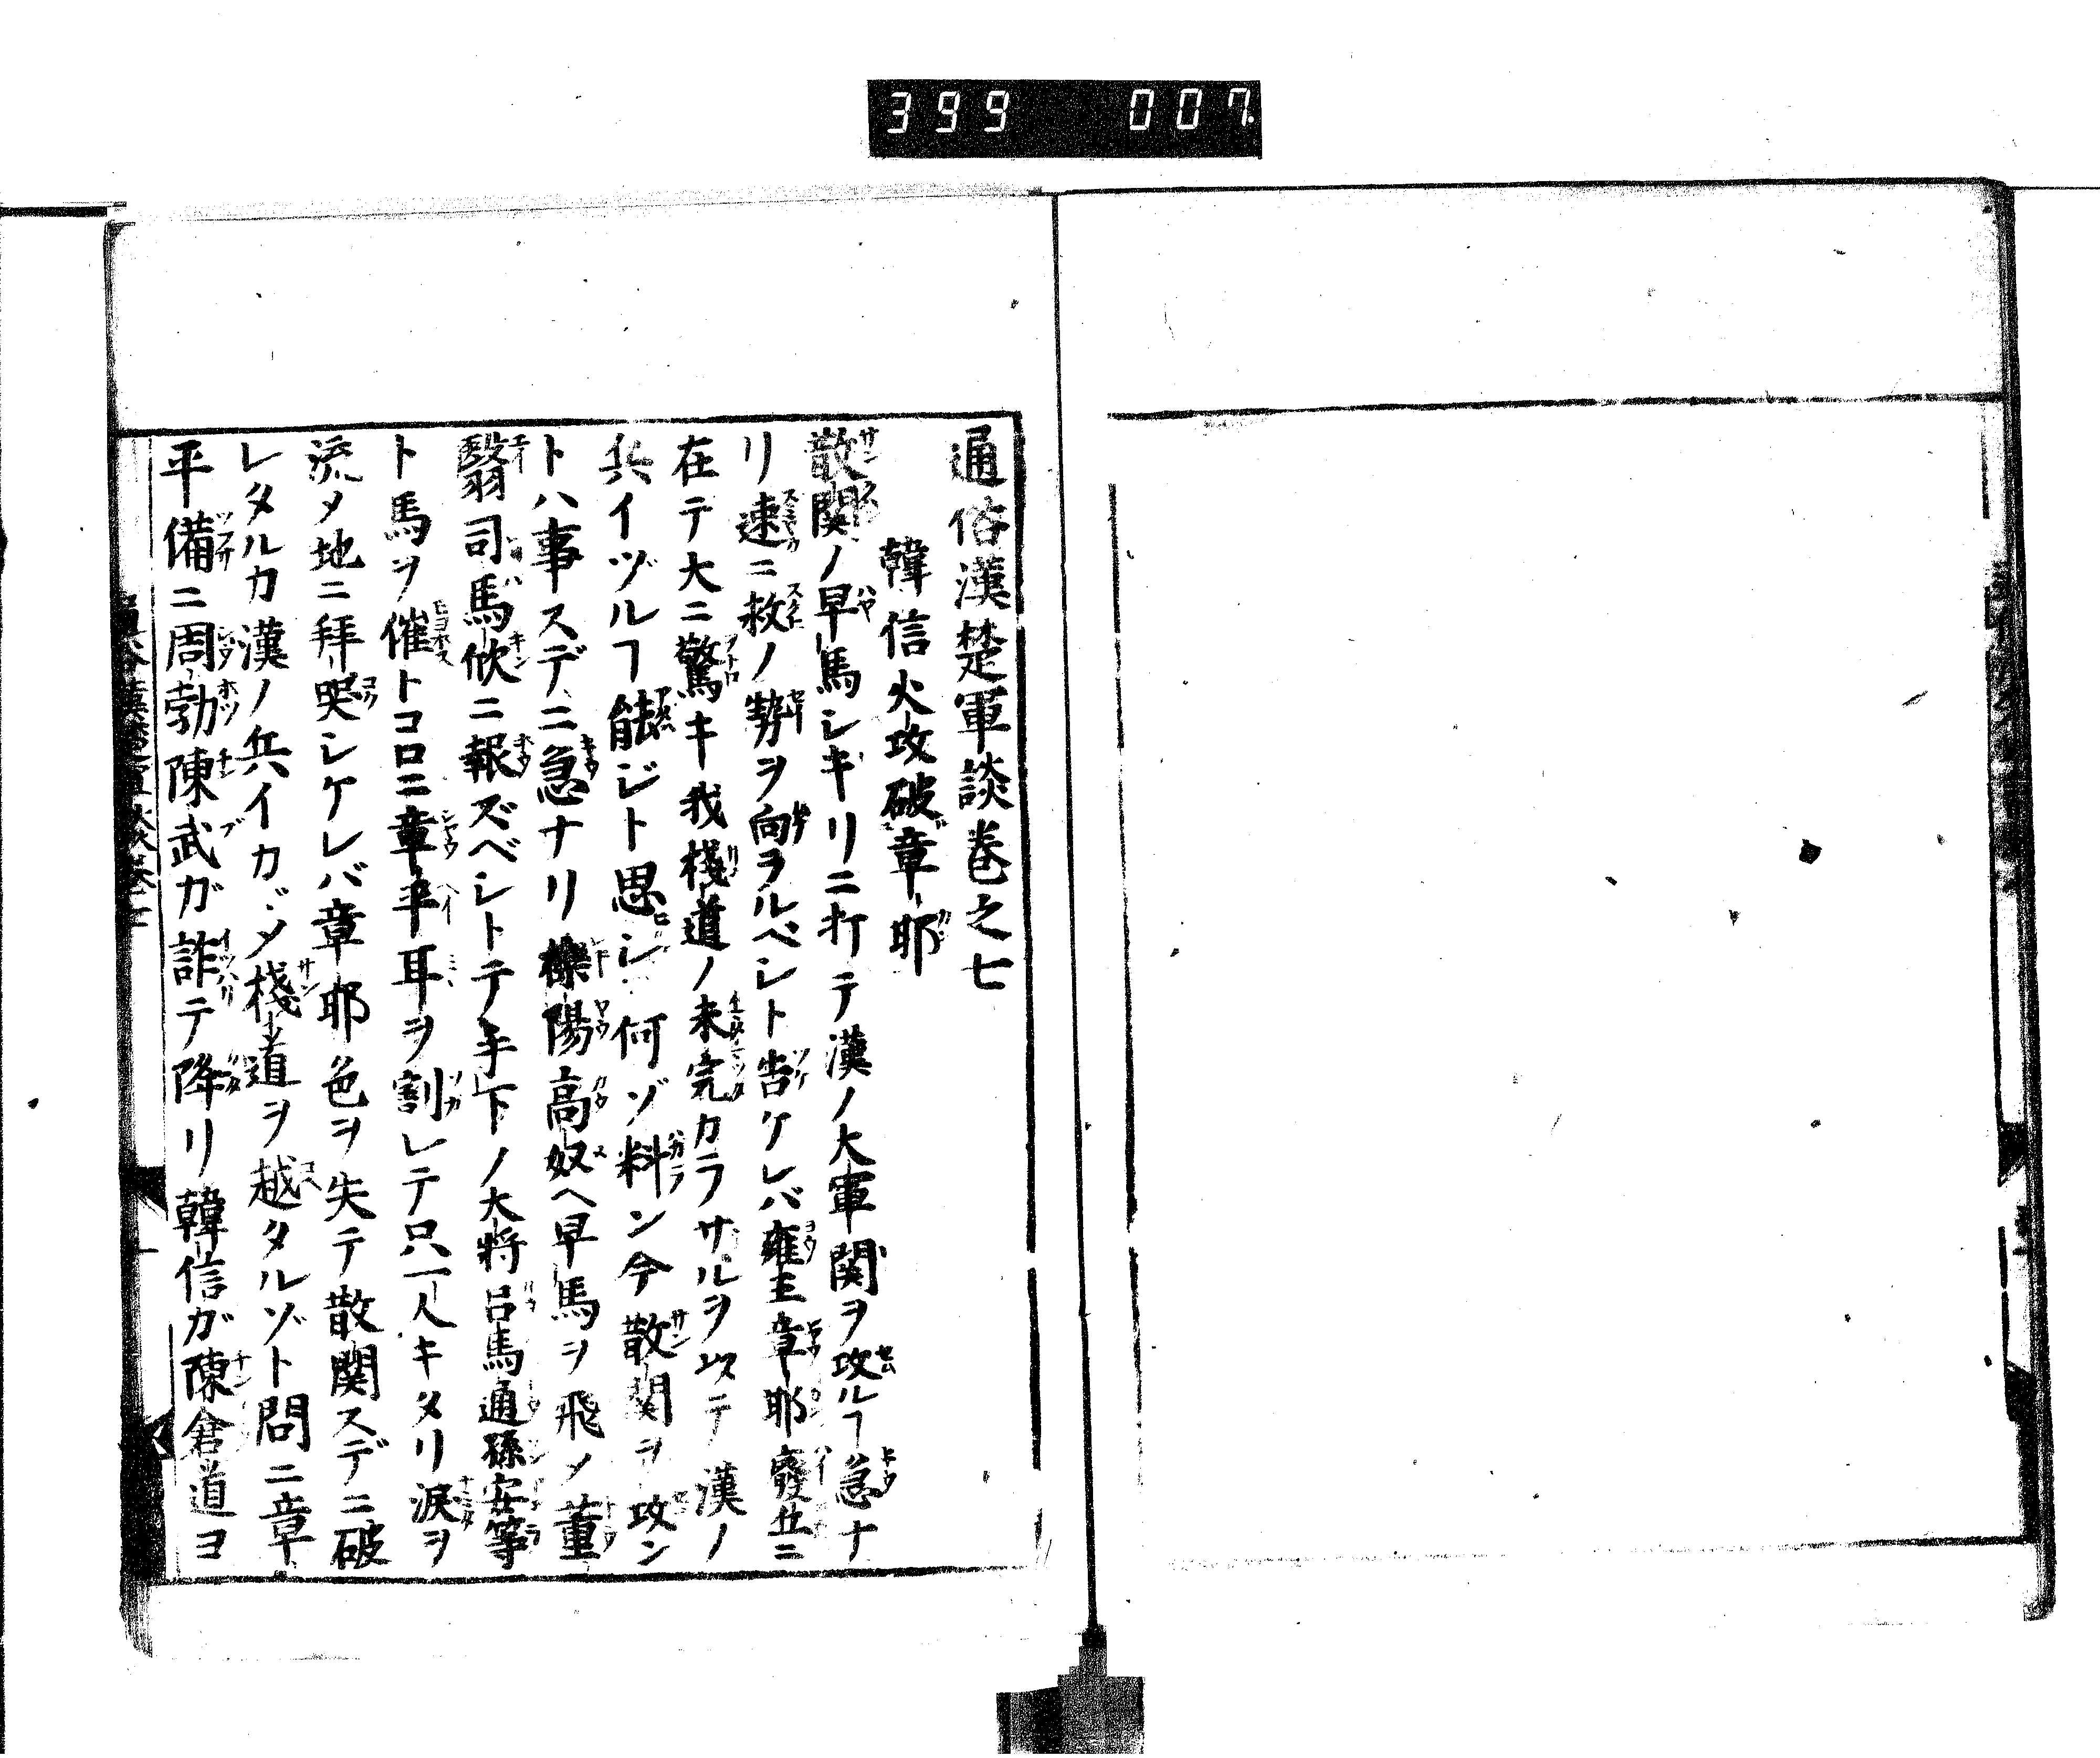 399 007
通俗漢楚軍談巻之七
韓信火攻破章邯
散関ノ早馬シキリニ打テ漢ノ大軍関ヲ攻ルヿ急ナ
リ速ニ救ノ勢ヲ向ヲルベシト告ケレバ雍王章邯廢丘ニ
在テ大ニ驚キ我棧道ノ未完カラサルヲ以テ漢ノ
兵イヅルヿ能ジト思シ何ゾ料ン今散関ヲ攻ン
トハ事スデニ急ナリ櫟陽高奴ヘ早馬ヲ飛メ董
翳司馬欣ニ報ズベシトテ手下ノ大将呂馬通孫安等
ト馬ヲ催トコロニ章平耳ヲ割レテ只一人キタリ涙ヲ
流メ地ニ拜哭シケレバ章邯色ヲ失テ散関スデニ破
レタルカ漢ノ兵イカヾメ棧道ヲ越タルゾト問ニ章
平備ニ周勃陳武ガ詐テ降リ韓信ガ陳倉道ヨ